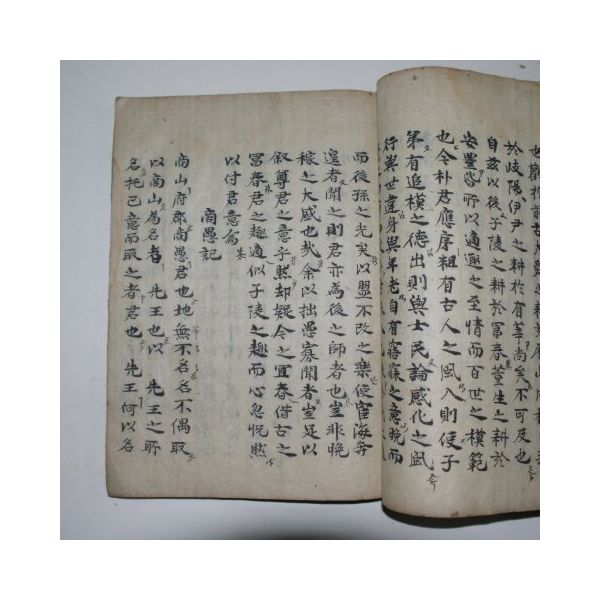 於岐陽伊尹之耕於有莘尚矣不可及也
自玆以後子陵之耕於富春董生之耕於
安豊皆所以適趣之至情而百世之模範
也今朴君應厚粗有古人之風入則使子
弟有追模之德出則與士民論感化之風
行與世違身與年老自有寤寐之意晩而
而後孫之光矣以盟不改之樂使宦海客
遑者聞之則君亦爲後之師者也豈非晩
稼之大感也哉余以拙愚寡聞者豈足以
叙尊君之意乎然却疑今之冝春偕古之
冨春君之趣適似子陵之趣而心忽恍然
以付君意爾
尚愚記
尚山府郡尚愚君也地無不名名不偶取
以南山爲名者 先王也以 先王之所
名托己意而取之者君也 先王何以名